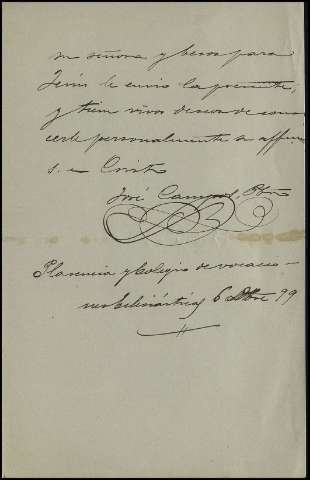 su señora y besos para
Jesús le envio la presente,
y tiene vivos deseos de cono
cerle personalmente su affmo
s. en Cristo
José Campos, Pbro
Plasencia y Colegio de vocacio-
nes Eclesiásticas 6 Dbre 99